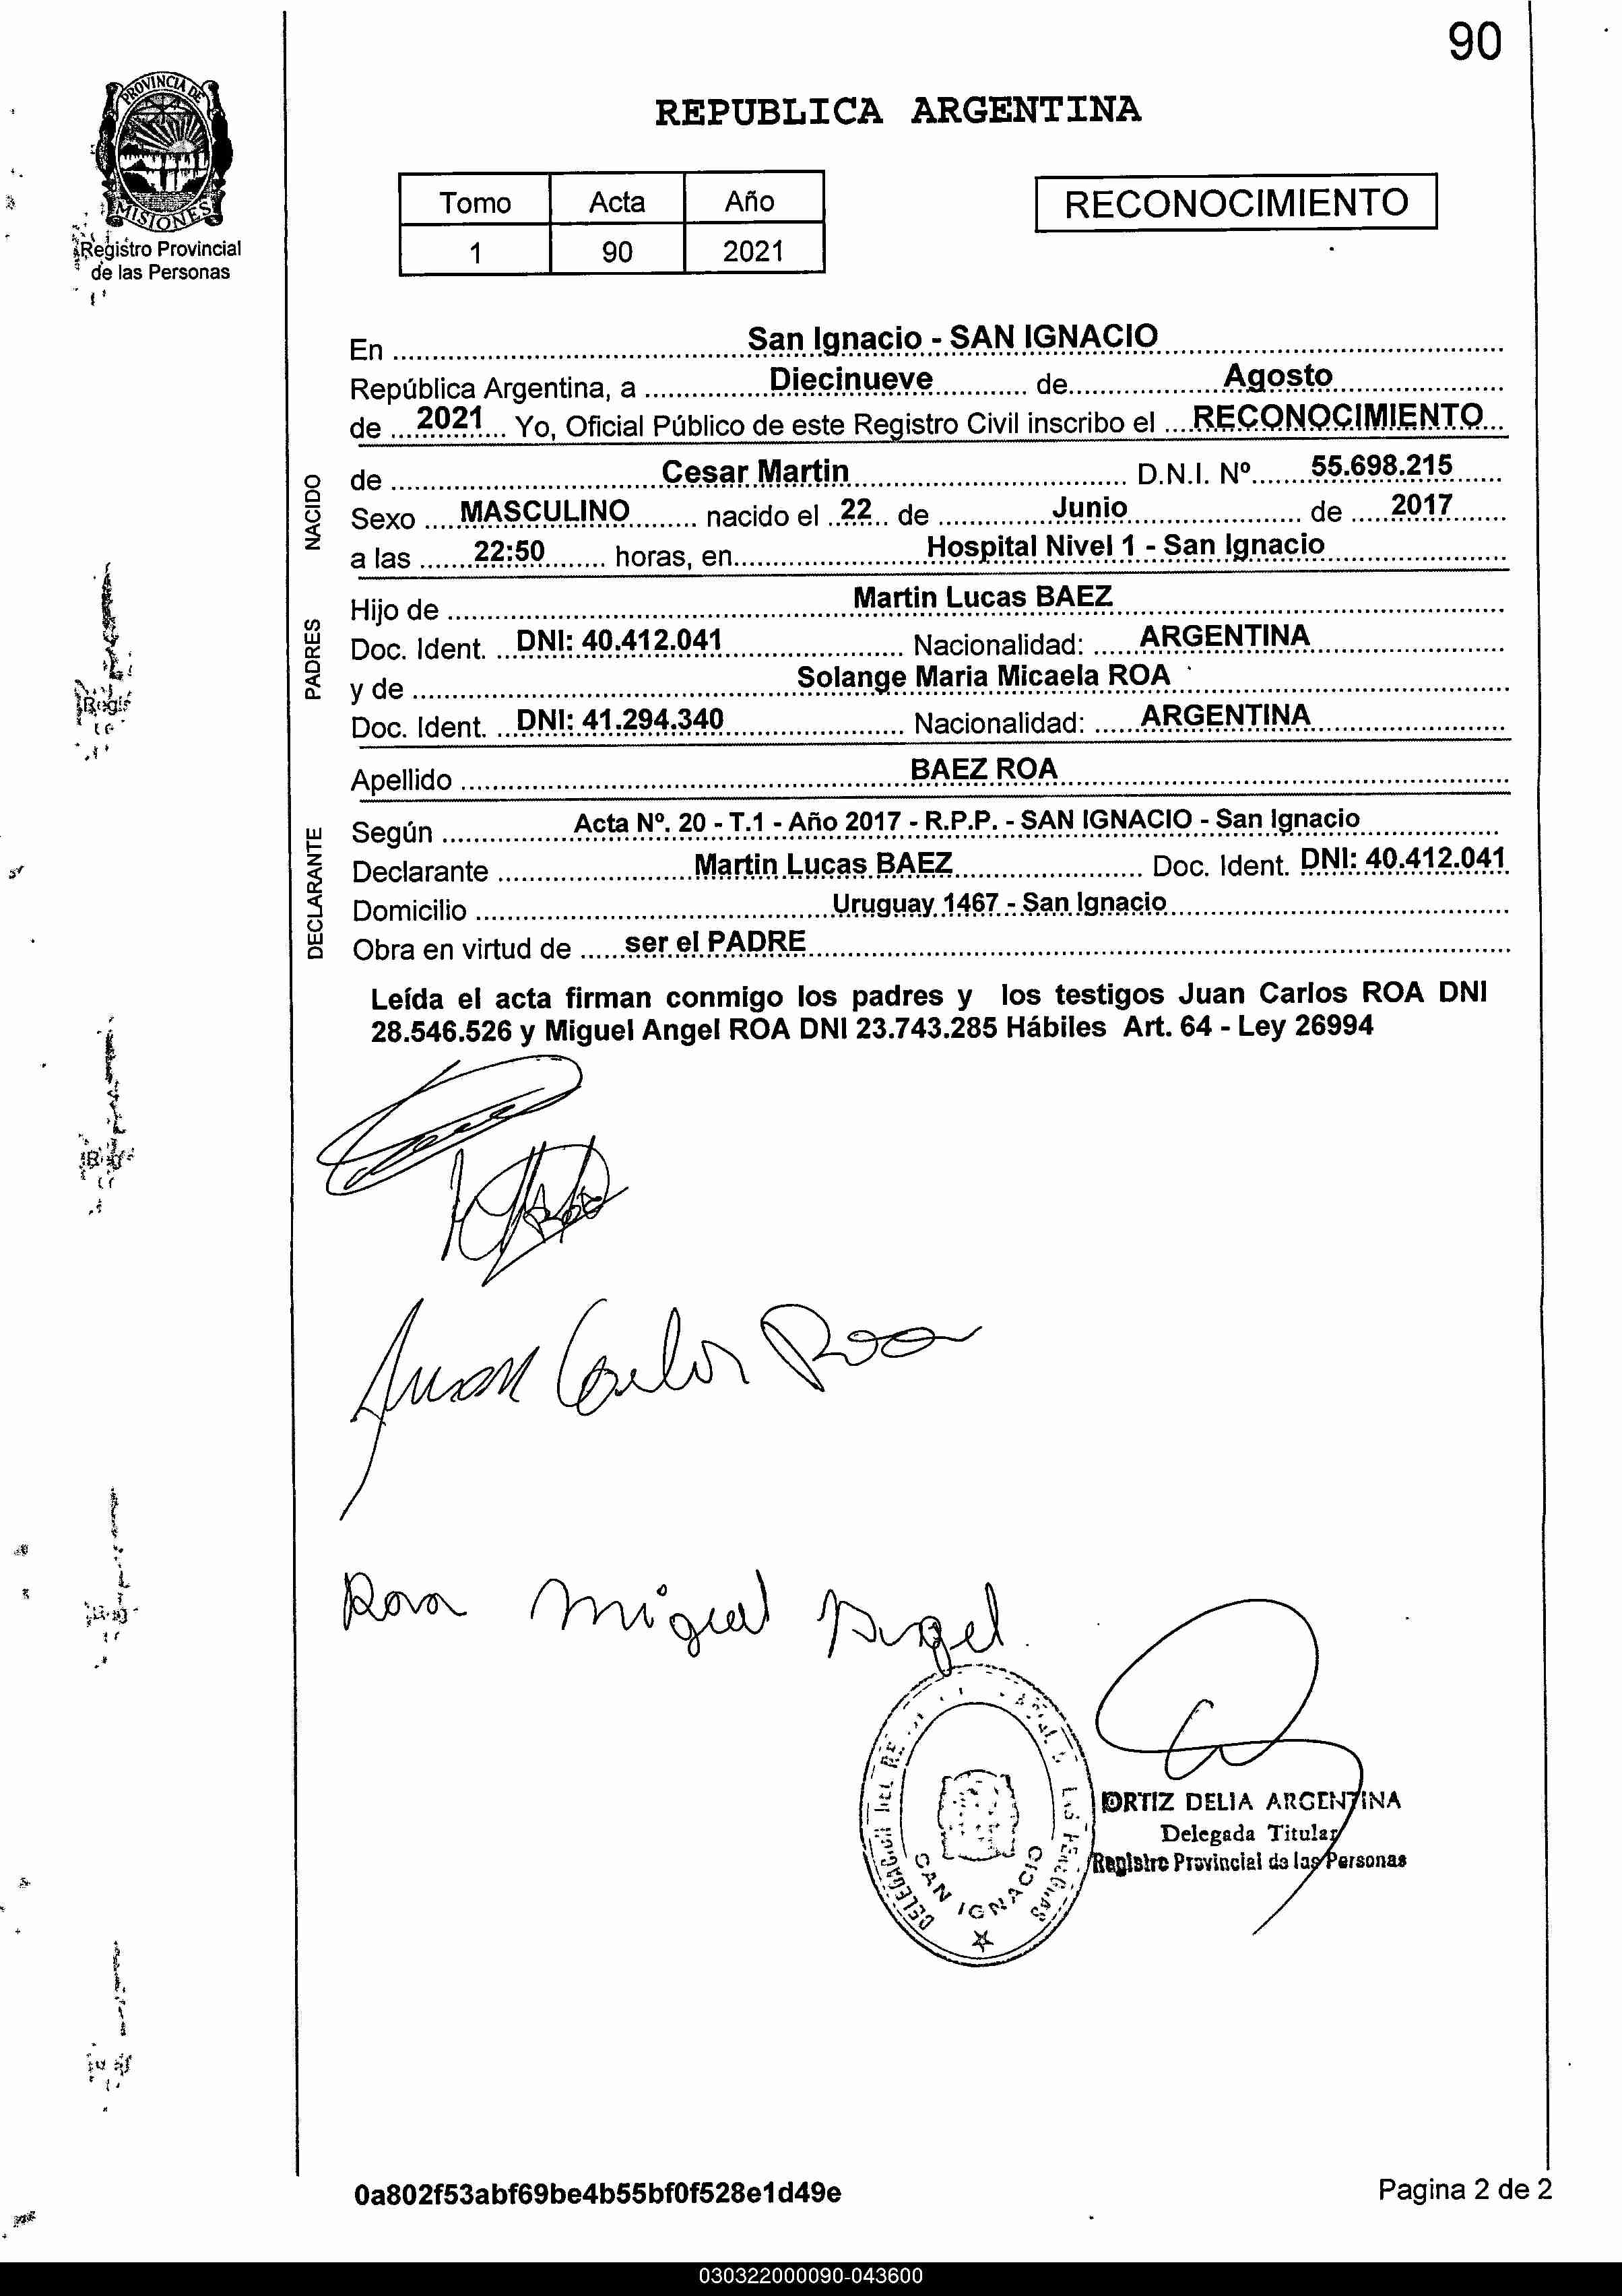 90
PROVINCIA DE
MISIONES
Registro Provincial
de las Personas
REPUBLICA ARGENTINA
Tomo Acta Año
1 90 2021
RECONOCIMIENTO
En San Ignacio - SAN IGNACIO
República Argentina, a Diecinueve de Agosto
de 2021 Yo, Oficial Público de este Registro Civil inscribo el RECONOCIMIENTO
NACIDO
de Cesar Martin D.N.I. Nº 55.698.215
Sexo MASCULINO nacido el 22 de Junio de 2017
a las 22:50 horas, en Hospital Nivel 1 - San Ignacio
PADRES
Hijo de Martin Lucas BAEZ
Doc. Ident. DNI: 40.412.041 Nacionalidad: ARGENTINA
y de Solange Maria Micaela ROA
Doc. Ident. DNI: 41.294.340 Nacionalidad: ARGENTINA
Apellido BAEZ ROA
DECLARANTE
Según Acta Nº. 20 - T.1 - Año 2017 - R.P.P. - SAN IGNACIO - San Ignacio
Declarante Martin Lucas BAEZ Doc. Ident. DNI: 40.412.041
Domicilio Uruguay 1467 - San Ignacio
Obra en virtud de ser el PADRE
Leída el acta firman conmigo los padres y los testigos Juan Carlos ROA DNI
28.546.526 y Miguel Angel ROA DNI 23.743.285 Hábiles Art. 64 - Ley 26994
Juan Carlos Roa
Roa Miguel Angel
DELEGACION DEL
SAN IGNACIO
ORTIZ DELIA ARGENTINA
Delegada Titular
Registro Provincial de las Personas
0a802f53abf69be4b55bf0f528e1d49e
Pagina 2 de 2
030322000090-043600